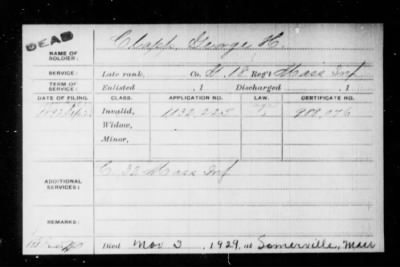 DEAD
NAME OF SOLDIER: Clapp, George H.
SERVICE: Late rank, Co. H, 18 Reg't Mass Inf
TERM OF SERVICE: Enlisted , 1 Discharged , 1
DATE OF FILING. CLASS. APPLICATION NO. LAW. CERTIFICATE NO.
Invalid, 1132,225 988,076
Widow,
Minor,
ADDITIONAL SERVICES: C. 32 Mass Inf
REMARKS:
Died Nov 3, 1929, at Somerville, Mass